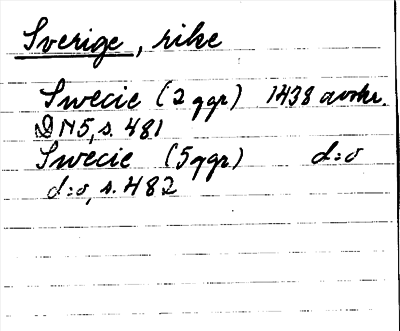 Sverige, rike
Swecie (2 ggr) 1438 avskr.
DN5, s. 481
Swecie (5 ggr) d:o
d:o, s. 482